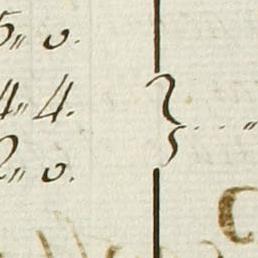 5„ 0.
4„ 4.
2„ 0.